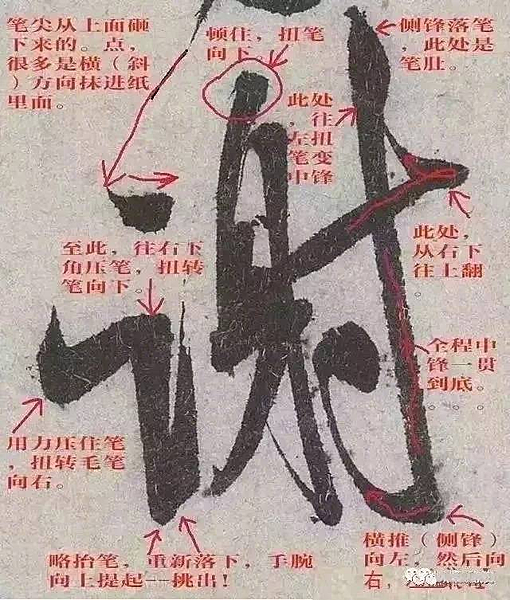 笔尖从上面砸
下来的。点，
很多是横（斜
）方向抹进纸
里面。
顿住，扭笔
向下
侧锋落笔
，此处是
笔肚。
此处
，往
左扭
笔变
中锋
謝
至此，往右下
角压笔，扭转
笔向下。
此处，
从右下
往上翻
。
全程中
锋一贯
到底。
用力压住笔
，扭转毛笔
向右。
略抬笔，重新落下，手腕
向上提起——挑出！
横推（侧锋）
向左，然后向
右，